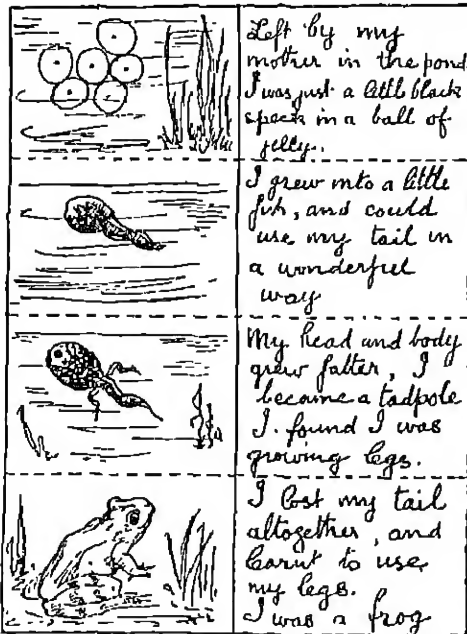 Left by my
mother in the pond
I was just a little black
speck in a ball of
jelly.
I grew into a little
fish, and could
use my tail in
a wonderful
way
My head and body
grew fatter, I
became a tadpole
I found I was
growing legs.
I lost my tail
altogether, and
learnt to use
my legs.
I was a frog